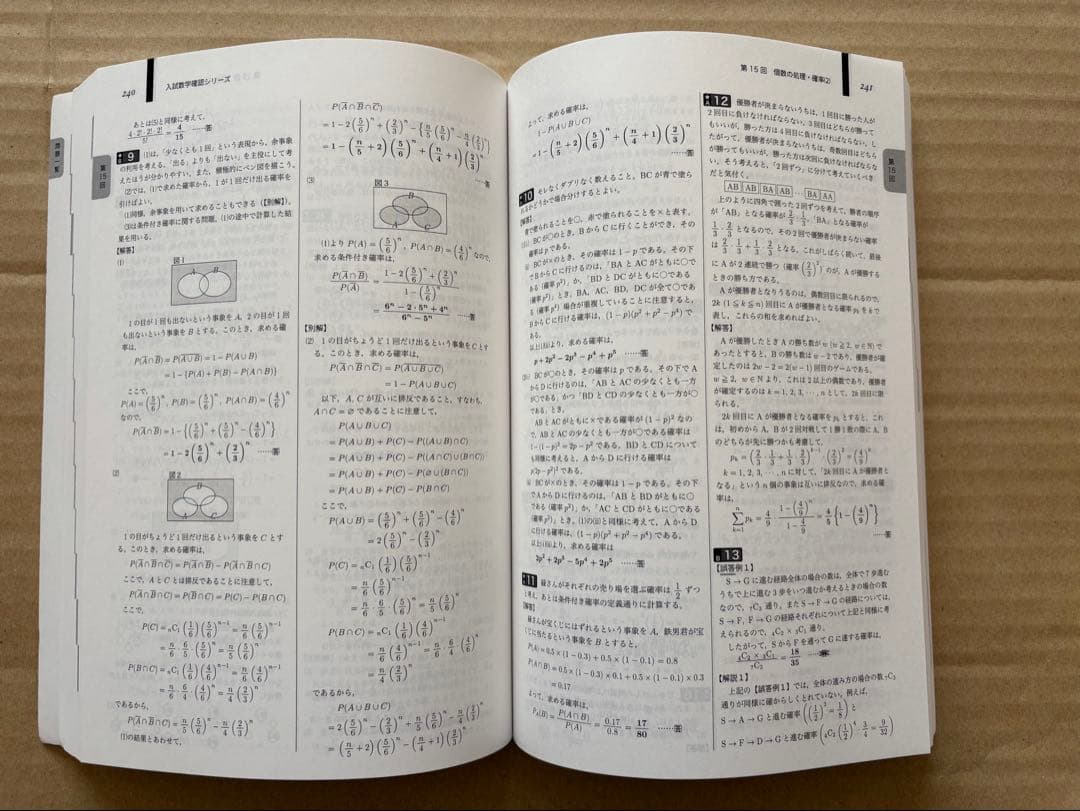 240
入試数学確認シリーズ
問題一覧
第15回
あとは(5)と同様に考えて,
4・2!・2!・2!/5! = 4/15 ……答
9 (1)は,「少なくとも1回」という表現から,余事象
の利用を考える.「出る」よりも「出ない」を主役にして考
えたほうが分かりやすい.また,積極的にベン図を描こう.
(2)では,(1)で求めた確率から,1が1回だけ出る確率を
引けばよい.
(1)同様,余事象を用いて求めることもできる(【別解】).
(3)は条件付き確率に関する問題.(1)の途中で計算した結
果を用いる.
【解答】
(1)
図1
A B
1の目が1回も出ないという事象をA,2の目が1回
も出ないという事象をBとする.このとき,求める確
率は,
P(A̅∩B̅)=P(A̅∪B̅)=1−P(A∪B)
=1−{P(A)+P(B)−P(A∩B)}
ここで,
P(A)=(5/6)^n, P(B)=(5/6)^n, P(A∩B)=(4/6)^n
なので,
P(A̅∩B̅)=1−{(5/6)^n+(5/6)^n−(4/6)^n}
=1−2(5/6)^n+(2/3)^n ……答
(2)
図2
B
A C
1の目がちょうど1回だけ出るという事象をCとす
る.このとき,求める確率は,
P(A̅∩B̅∩C̅)
ここで,AとCとは排反であることに注意して,
P(A̅∩B̅∩C)=P(B̅∩C)=P(C)−P(B∩C)
ここで,
P(C)=nC1(1/6)(5/6)^{n−1}=n/6(5/6)^{n−1}
=n/6・6/5(5/6)^n=n/5(5/6)^n
P(B∩C)=nC1(1/6)(4/6)^{n−1}=n/6(4/6)^{n−1}
=n/6・6/4(4/6)^n=n/4(2/3)^n
であるから,
P(A̅∩B̅∩C)=n/5(5/6)^n−n/4(2/3)^n
(1)の結果とあわせて,
P(A̅∩B̅∩C̅)
=1−2(5/6)^n+(2/3)^n−{n/5(5/6)^n−n/4(2/3)^n}
=1−(n/5+2)(5/6)^n+(n/4+1)(2/3)^n ……答
(3)
図3
B
A C
(1)より P(A)=(5/6)^n, P(A∩B)=(4/6)^n なので,
求める条件付き確率は,
P(A̅∩B̅)/P(A̅)=(1−2(5/6)^n+(2/3)^n)/(1−(5/6)^n)
=(6^n−2・5^n+4^n)/(6^n−5^n) ……答
【別解】
(2) 1の目がちょうど1回だけ出るという事象をCとす
る.このとき,求める確率は,
P(A̅∩B̅∩C̅)=P(A̅∪B̅∪C̅)
=1−P(A∪B∪C)
以下,A,Cが互いに排反であること,すなわち,
A∩C=∅であることに注意して,
P(A∪B∪C)
=P(A∪B)+P(C)−P((A∪B)∩C)
=P(A∪B)+P(C)−P((A∩C)∪(B∩C))
=P(A∪B)+P(C)−P(∅∪(B∩C))
=P(A∪B)+P(C)−P(B∩C)
ここで,
P(A∪B)=(5/6)^n+(5/6)^n−(4/6)^n
=2(5/6)^n−(2/3)^n
P(C)=nC1(1/6)(5/6)^{n−1}
=n/6(5/6)^{n−1}
=n/6・6/5(5/6)^n=n/5(5/6)^n
P(B∩C)=nC1(1/6)(4/6)^{n−1}
=n/6(4/6)^{n−1}=n/6・6/4(4/6)^n
=n/4(2/3)^n
であるから,
P(A∪B∪C)
=2(5/6)^n−(2/3)^n+n/5(5/6)^n−n/4(2/3)^n
=(n/5+2)(5/6)^n−(n/4+1)(2/3)^n
第15回 個数の処理・確率(2)
241
第15回
よって,求める確率は,
1−P(A∪B∪C)
=1−(n/5+2)(5/6)^n+(n/4+1)(2/3)^n
……答
10 モレなくダブリなく数えること.BCが青で塗ら
れるかどうかで場合分けするとよい.
【解答】
青で塗られることを○,赤で塗られることを×と表す.
BCが○のとき,BからCに行くことができ,その
確率はpである.
BCが×のとき,その確率は1−pである.その下
でBからCに行けるのは,「BAとACがともに○で
ある(確率p²)」か,「BDとDCがともに○である
(確率p²)」とき.BA,AC,BD,DCが全て○であ
る(確率p⁴)場合が重複していることに注意すると,
BからCに行ける確率は,(1−p)(p²+p²−p⁴)で
ある.
以上(i)(ii)より,求める確率は
p+2p²−2p³−p⁴+p⁵ ……答
BCが○のとき,その確率はpである.その下で A
からDに行けるのは,「ABとACの少なくとも一方
が○である」かつ「BDとCDの少なくとも一方が○
である」とき.
ABとACがともに×である確率が(1−p)²なの
で,ABとACの少なくとも一方が○である確率は
1−(1−p)²=2p−p²である.BDとCDについても
同様に考えると,AからDに行ける確率は
p(2p−p²)²である.
BCが×のとき,その確率は1−pである.その下
でAからDに行けるのは,「ABとBDがともに○で
ある(確率p²)」か,「ACとCDがともに○である
(確率p²)」とき.(1)の(ii)と同様に考えて,AからD
に行ける確率は,(1−p)(p²+p²−p⁴)である.
以上(i)(ii)より,求める確率は
2p²+2p³−5p⁴+2p⁵ ……答
11 緑さんがそれぞれの売り場を選ぶ確率は1/2ずつ
と考え,あとは条件付き確率の定義通りに計算する.
【解答】
緑さんが宝くじにはずれるという事象をA,鉄男君が宝
くじに当たるという事象をBとすると,
P(A)=0.5×(1−0.3)+0.5×(1−0.1)=0.8
P(A∩B)=0.5×(1−0.3)×0.1+0.5×(1−0.1)×0.3
=0.17
よって,求める確率は,
P_A(B)=P(A∩B)/P(A)=0.17/0.8=17/80 ……答
12 優勝者が決まらないうちは,1回目に勝った人が
2回目に負けなければならない.3回目はどちらが勝って
もいいが,勝った方は4回目に負けなければならない.し
たがって,優勝者が決まらないうちは,奇数回目はどちら
が勝ってもいいが,勝った方は次回に負けなければならな
い.そう考えると,「2回ずつ」に分けて考えていくべき
だと気付く.
AB AB BA AB … BA AA
上のように四角で囲った2回ずつを考えて,勝者の順序
が「AB」となる確率が2/3・1/3,「BA」となる確率が
1/3・2/3となるので,その2回で優勝者が決まらない確率
は2/3・1/3+1/3・2/3となる.これがしばらく続いて,最後
にAが2連続で勝つ(確率(2/3)²)のが,Aが優勝する
ときの勝ち方である.
Aが優勝者となりうるのは,偶数回目に限られるので,
2k(1≦k≦n)回目にAが優勝者となる確率p_kをkで
表し,これらの和を求めればよい.
【解答】
Aが優勝したときAの勝ち数がw(w≧2,w∈N)で
あったとすると,Bの勝ち数はw−2であり,優勝者が確
定したのは2w−2=2(w−1)回目のゲームである.
w≧2,w∈Nより,これは2以上の偶数であり,優勝者
が確定するのはk=1,2,3,…,nとして,2k回目に限
られる.
2k回目にAが優勝者となる確率をp_kとすると,これ
は,初めからA,Bが2回対戦して1勝1敗の際にA,B
のどちらが先に勝つかも考慮して,
p_k=(2/3・1/3+1/3・2/3)^{k−1}(2/3)²=(4/9)^k
k=1,2,3,…,nに対して,「2k回目にAが優勝者と
なる」というn個の事象は互いに排反なので,求める確
率は,
Σ_{k=1}^{n} p_k=4/9・(1−(4/9)^n)/(1−4/9)=4/5{1−(4/9)^n}
……答
B 13
【誤答例1】
S→Gに進む経路全体の場合の数は,全体で7歩進む
うちで上に進む3歩をいつ進むか考えるときの場合の数
なので,₇C₃通り.またS→F→Gの経路については,
S→F,F→Gの経路それぞれについて上記と同様に考
えられるので,₄C₂×₃C₁通り.
したがって,SからFを通ってGに達する確率は,
₄C₂×₃C₁/₇C₃=18/35
【解説1】
上記の【誤答例1】では,全体の進み方の場合の数₇C₃
通りが同様に確からしくとれていない.例えば,
S→A→Gと進む確率((1/2)³=1/8)と
S→F→D→Gと進む確率(₄C₂(1/2)⁴・3/4=9/32)